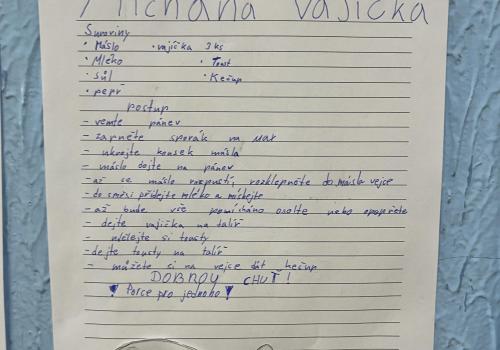 Míchaná vajíčka
Suroviny
• Máslo • vajíčka 3 ks
• Mléko • Toast
• sůl • Kečup
• pepř
Postup
- vemte pánev
- zapněte sporák na max
- ukrojte kousek másla
- máslo dejte na pánev
- až se máslo rozpustí, rozklepněte do másla vejce
- do směsi přidejte mléko a míchejte
- až bude vše pomícháno osolte nebo opepřete
- dejte vajíčka na talíř
- udělejte si tousty
- dejte tousty na talíř
- můžete si na vejce dát kečup
DOBROU CHUŤ!
! Porce pro jednoho !